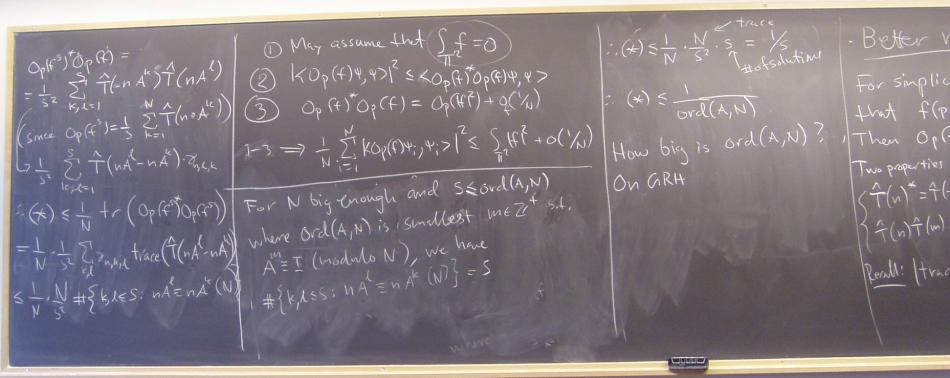 Op(f^S)^* Op(f) =
= 1/S² Σ_{k,l=1}^{S} T̂(-nA^k) T̂(nA^l)
(since Op(f^S) = 1/S Σ_{k=1} T̂(n∘A^k))
1/S² Σ_{k,l=1}^{S} T̂(nA^l - nA^k) z_{n,l,k}
∴ (*) ≤ 1/N tr (Op(f^S)^* Op(f^S))
= 1/N · 1/S² Σ_{k,l} z_{n,k,l} trace(T̂(nA^l - nA^k))
≤ 1/N · N/S² #{k,l≤S : nA^l ≡ nA^k (N)}
① May assume that ∫_{π²} f = 0
② |<Op(f)ψ,ψ>|² ≤ <Op(f)^* Op(f)ψ,ψ>
③ Op(f)^* Op(f) = Op(|f|²) + O_f(1/N)
1-3 ⟹ 1/N Σ_{i=1}^{N} |<Op(f)ψ_i,ψ_i>|² ≤ ∫_{π²} |f|² + O(1/N)
For N big enough and S ≤ ord(A,N)
where Ord(A,N) is smallest m∈Z⁺ s.t.
A^m ≡ I (modulo N), we have
#{k,l≤S : nA^l ≡ nA^k (N)} = S
where
trace
∴ (*) ≤ 1/N · N/S² · S = 1/S
# of solutions
∴ (*) ≤ 1/ord(A,N)
How big is ord(A,N)?
On GRH
· Better
For simpli
that f(p
Then Op(
Two properties
{ T̂(n)^* = T̂(-
T̂(n) T̂(m)
Recall: |trac